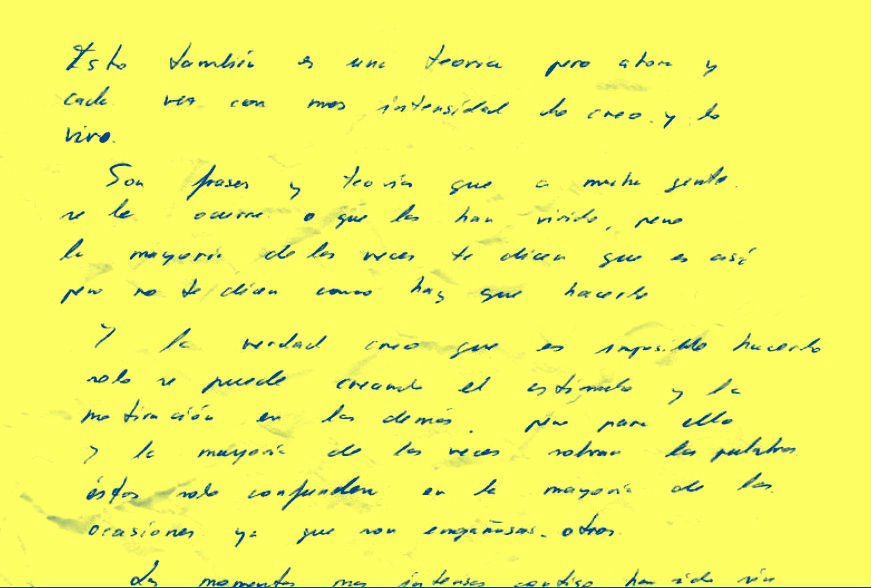 Esto también es una teoria pero ahora y
cada vez con mas intensidad lo creo y lo
vivo.
Son frases y teorias que a mucha gente
se le ocurre o que las han vivido, pero
la mayoria de las veces te dicen que es asi
pero no te dicen como hay que hacerlo
Y la verdad creo que es imposible hacerlo
solo se puede creando el estimulo y la
motivación en los demás, pero para ello
y la mayoria de las veces sobran las palabras
éstas solo confunden en la mayoria de las
ocasiones ya que son engañosas. otros
Los momentos mas intensos contigo han sido sin